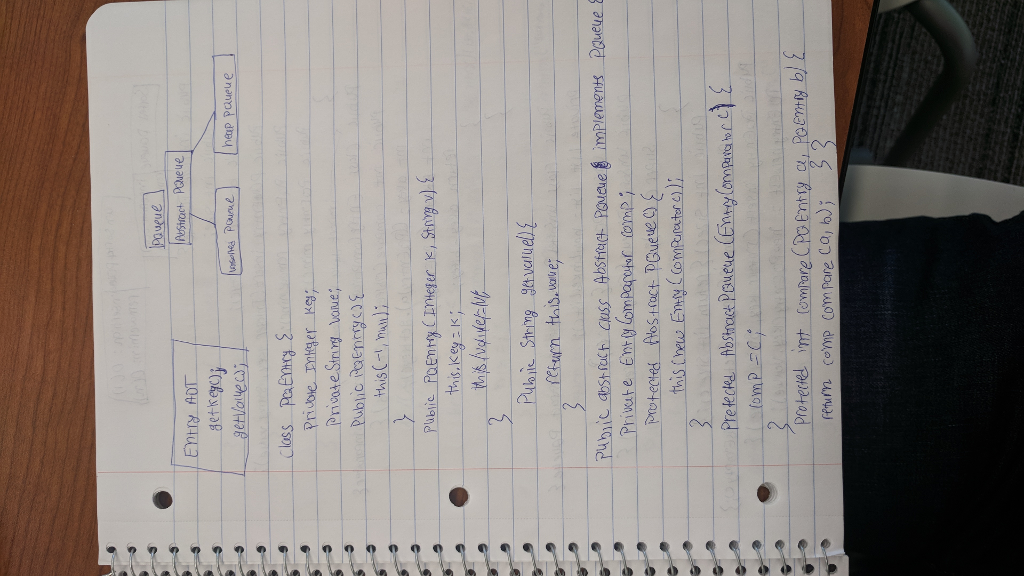 PQueue
Entry ADT
Abstract PQueue
getKey();
getValue();
heap PQueue
class PQEntry {
Private Integer key;
Private String value;
Public PQEntry() {
this(-1, null);
}
Public PQEntry(Integer K, String v) {
this.key = K;
}
Public String getvalue() {
return this.value;
}
Public abstract class Abstract PQueue implements PQueue {
Private EntryComparator comp;
Protected Abstract PQueue() {
this(new EntryComparator());
}
Protected AbstractPQueue (EntryComparator C) {
comp = C;
}
Protected int compare (PQEntry a, PQEntry b) {
return comp.compare (a, b); } }